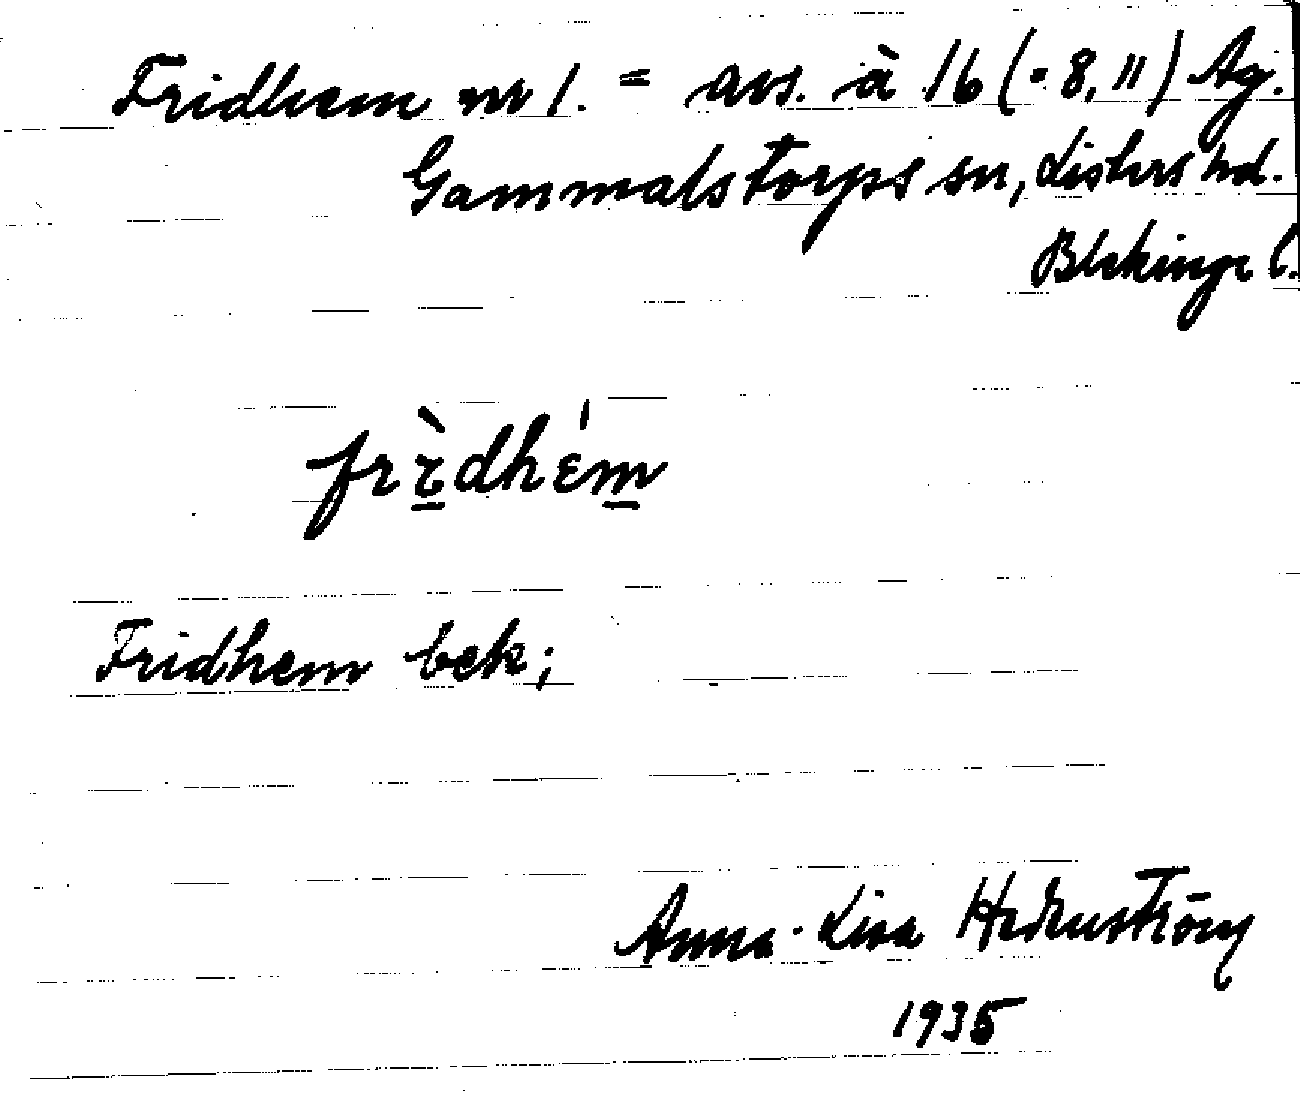 Fridhem nr 1. = avs. à 16 (= 8, 11) Äg.
Gammalstorps sn, Listers hd.
Blekinge l.
frɪ̀dhém
Fridhem bek;
Anna-Lisa Hedenström
1935